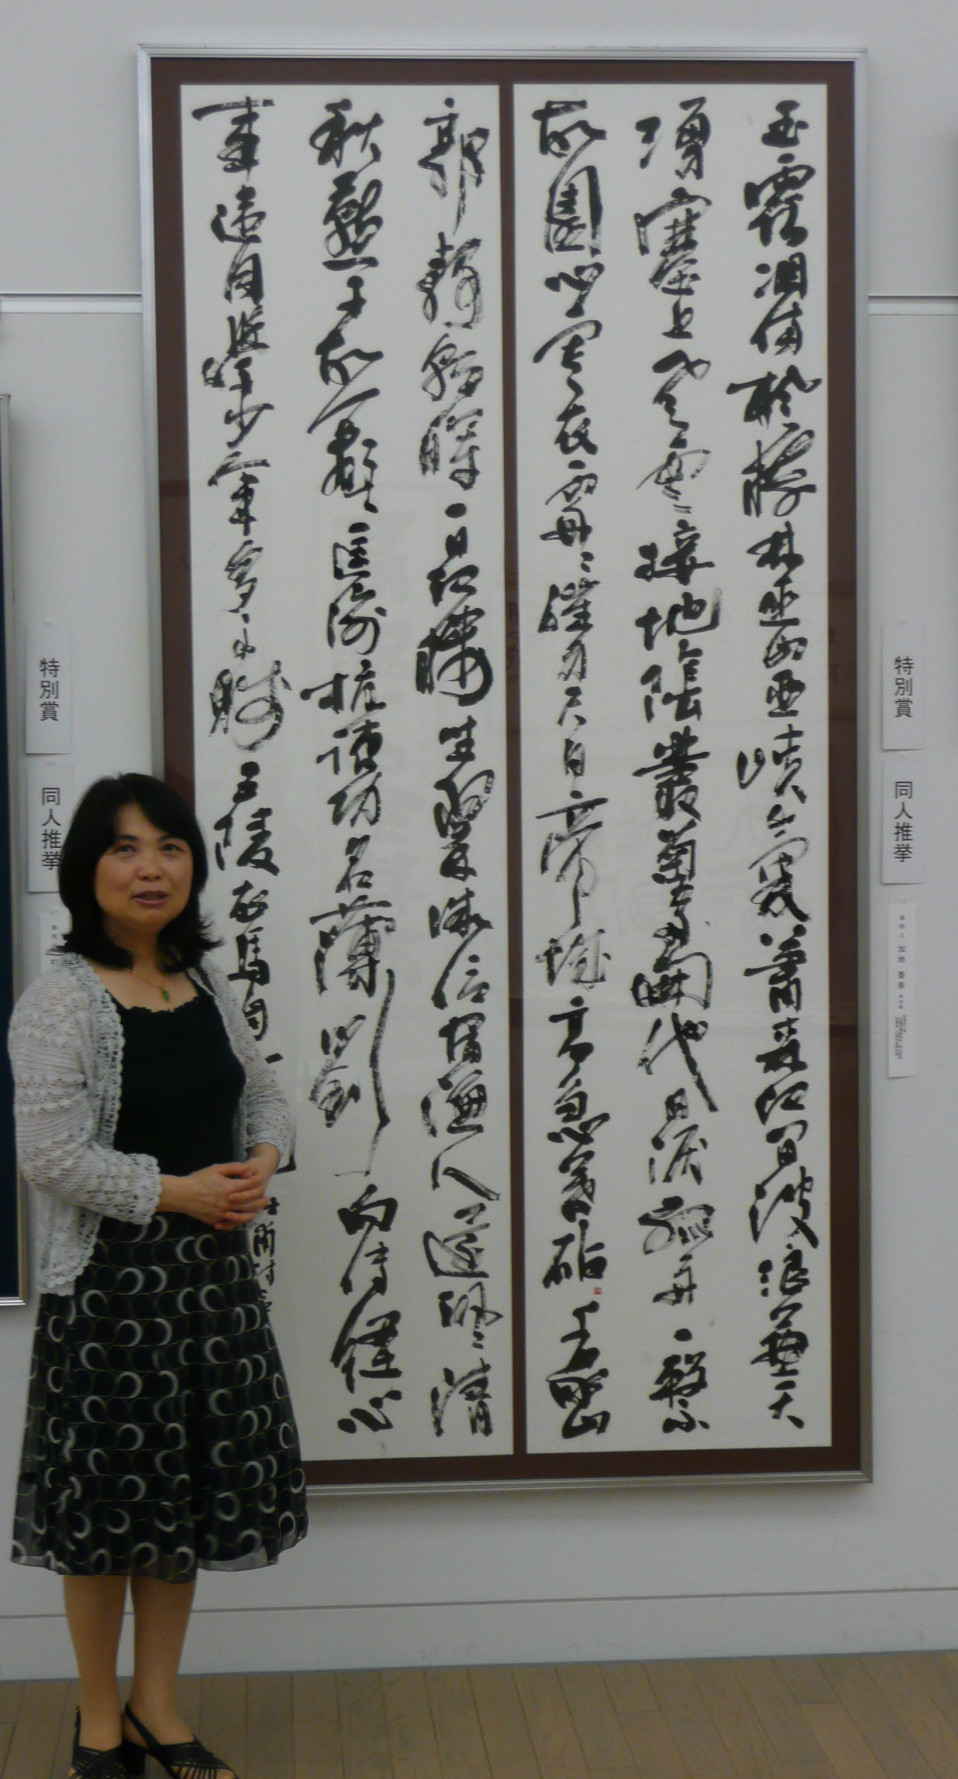 玉露凋傷楓樹林巫山巫峽氣蕭森江間波浪兼天
湧塞上風雲接地陰叢菊兩開他日淚孤舟一繫
故園心寒衣處々催刀尺白帝城高急暮砧千家山
郭静朝暉一日江樓坐翠微信宿漁人還汎々清
秋燕子故飛々匡衡抗疏功名薄劉向傳經心
事違同學少年多不賤五陵衣馬自
特別賞
同人推挙
特別賞
同人推挙